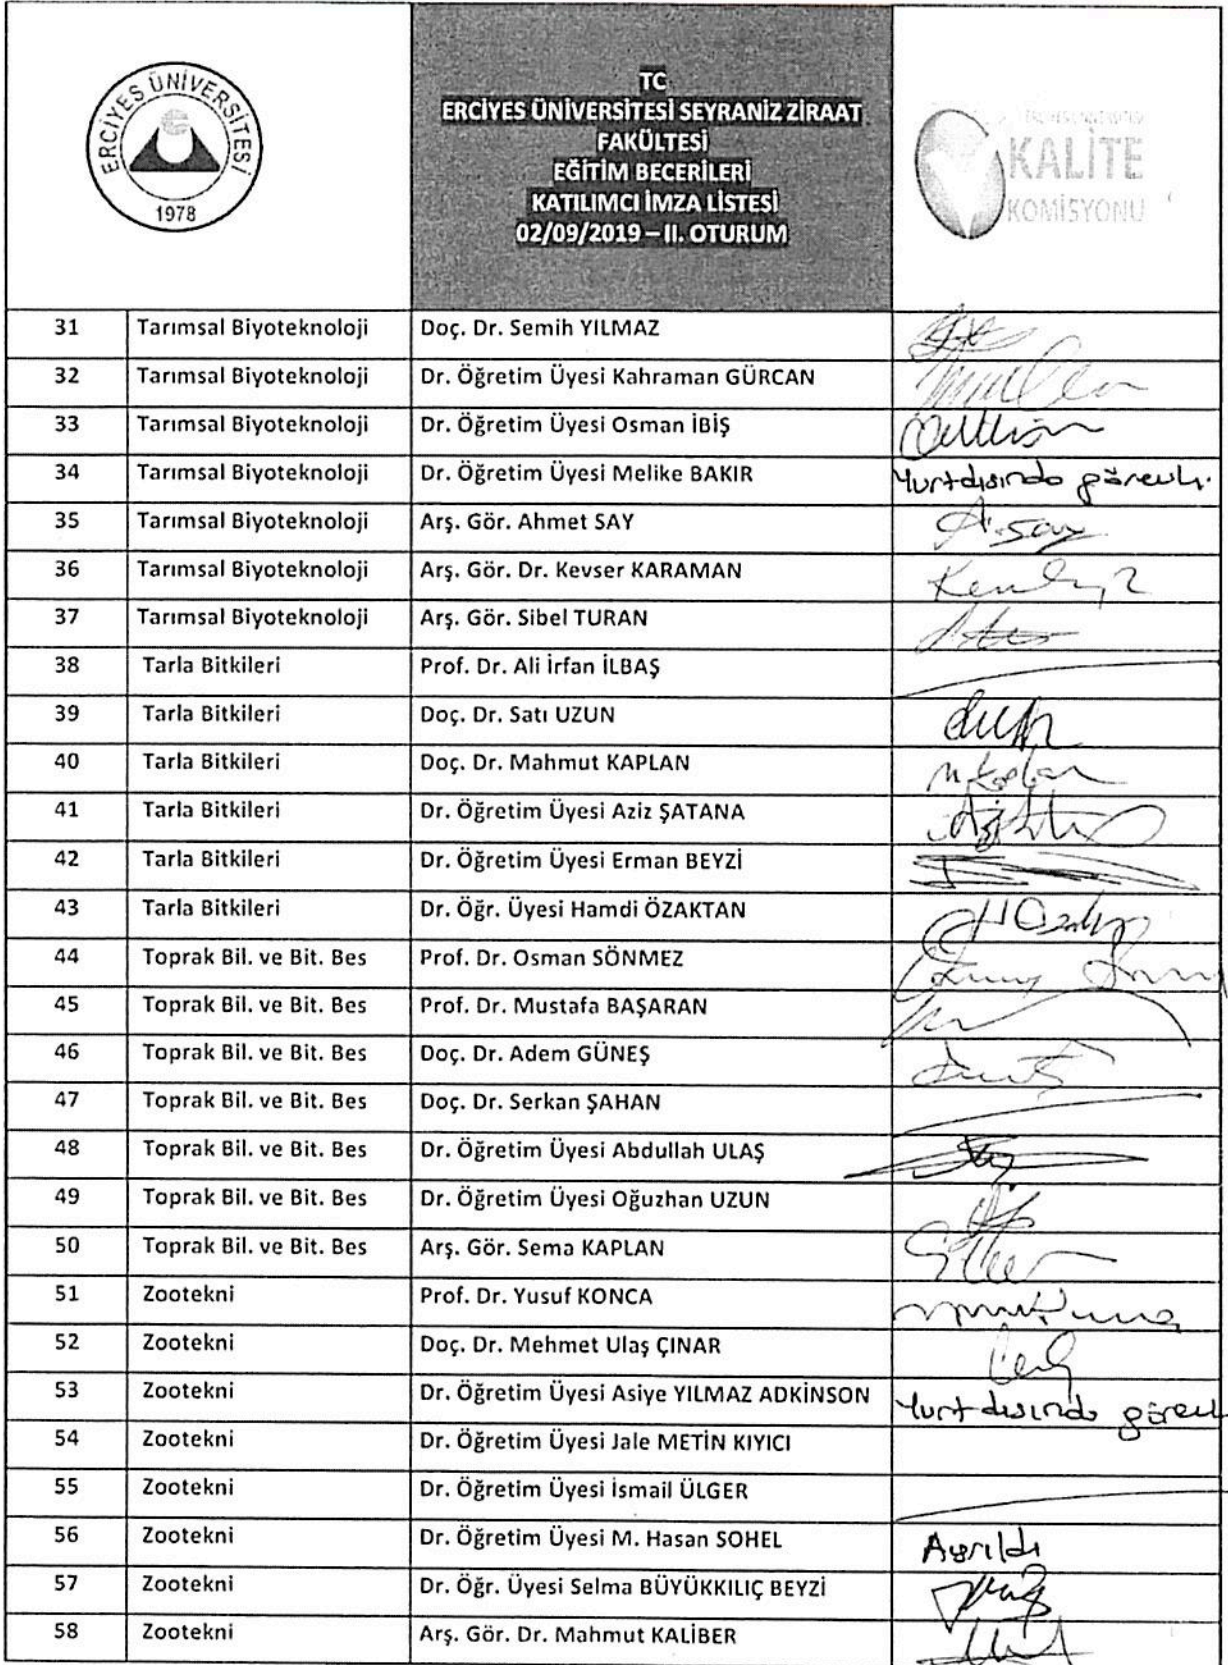 ERCİYES ÜNİVERSİTESİ
1978
TC
ERCİYES ÜNİVERSİTESİ SEYRANİZ ZİRAAT
FAKÜLTESİ
EĞİTİM BECERİLERİ
KATILIMCI İMZA LİSTESİ
02/09/2019 – II. OTURUM
KALİTE
KOMİSYONU
31 Tarımsal Biyoteknoloji Doç. Dr. Semih YILMAZ
32 Tarımsal Biyoteknoloji Dr. Öğretim Üyesi Kahraman GÜRCAN
33 Tarımsal Biyoteknoloji Dr. Öğretim Üyesi Osman İBİŞ
34 Tarımsal Biyoteknoloji Dr. Öğretim Üyesi Melike BAKIR Yurtdışında görevli.
35 Tarımsal Biyoteknoloji Arş. Gör. Ahmet SAY A.Say
36 Tarımsal Biyoteknoloji Arş. Gör. Dr. Kevser KARAMAN
37 Tarımsal Biyoteknoloji Arş. Gör. Sibel TURAN
38 Tarla Bitkileri Prof. Dr. Ali İrfan İLBAŞ
39 Tarla Bitkileri Doç. Dr. Satı UZUN
40 Tarla Bitkileri Doç. Dr. Mahmut KAPLAN
41 Tarla Bitkileri Dr. Öğretim Üyesi Aziz ŞATANA
42 Tarla Bitkileri Dr. Öğretim Üyesi Erman BEYZİ
43 Tarla Bitkileri Dr. Öğr. Üyesi Hamdi ÖZAKTAN
44 Toprak Bil. ve Bit. Bes Prof. Dr. Osman SÖNMEZ
45 Toprak Bil. ve Bit. Bes Prof. Dr. Mustafa BAŞARAN
46 Toprak Bil. ve Bit. Bes Doç. Dr. Adem GÜNEŞ
47 Toprak Bil. ve Bit. Bes Doç. Dr. Serkan ŞAHAN
48 Toprak Bil. ve Bit. Bes Dr. Öğretim Üyesi Abdullah ULAŞ
49 Toprak Bil. ve Bit. Bes Dr. Öğretim Üyesi Oğuzhan UZUN
50 Toprak Bil. ve Bit. Bes Arş. Gör. Sema KAPLAN
51 Zootekni Prof. Dr. Yusuf KONCA
52 Zootekni Doç. Dr. Mehmet Ulaş ÇINAR
53 Zootekni Dr. Öğretim Üyesi Asiye YILMAZ ADKİNSON Yurt dışında görevl
54 Zootekni Dr. Öğretim Üyesi Jale METİN KIYICI
55 Zootekni Dr. Öğretim Üyesi İsmail ÜLGER
56 Zootekni Dr. Öğretim Üyesi M. Hasan SOHEL Ayrıldı
57 Zootekni Dr. Öğr. Üyesi Selma BÜYÜKKILIÇ BEYZİ
58 Zootekni Arş. Gör. Dr. Mahmut KALİBER